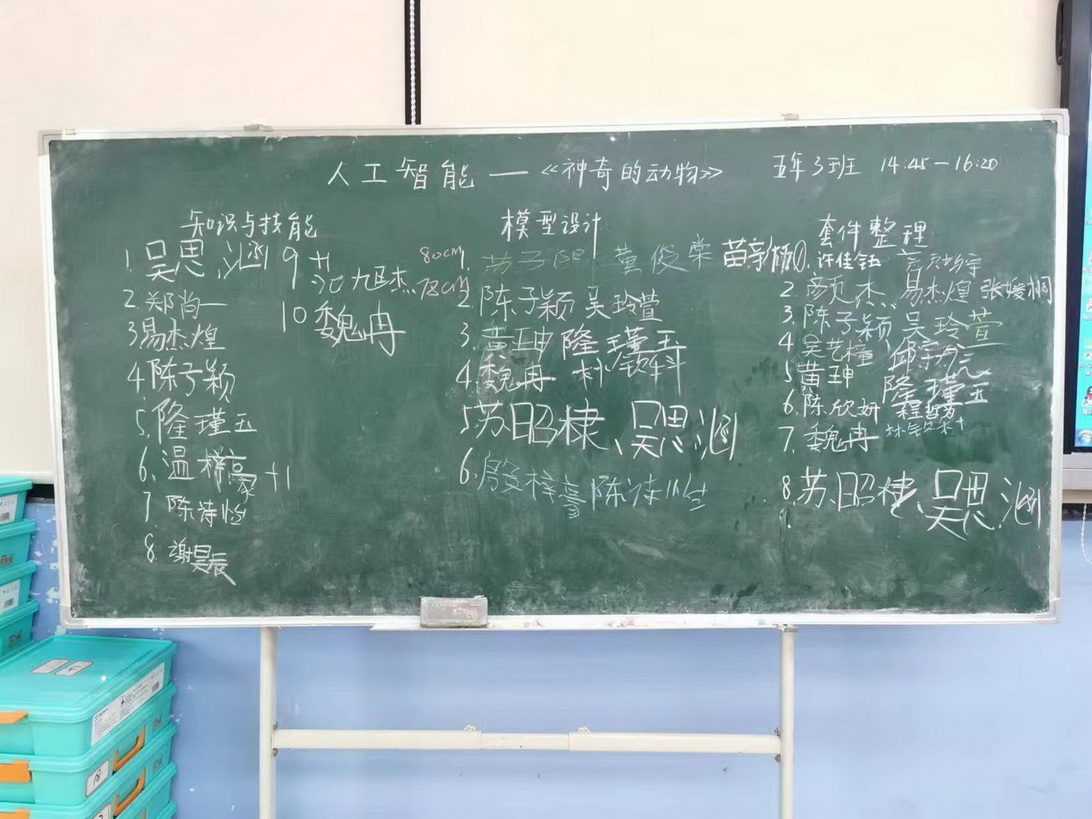 人工智能—《神奇的动物》 五年3班 14:45—16:20
知识与技能
1.吴思涵
2.郑尚一
3易杰煌
4.陈子颖
5.隆瑾玉
6.温梓豪+1
7.陈诗怡
8.谢昊辰
9+1
江旭杰
10魏冉
模型设计
80cm
78cm 董俊荣
2.陈子颖 吴玲萱
3.黄珅 隆瑾玉
4.魏冉 林钦科
5苏昭棣、吴思涵
6.殷梓豪 陈
套件整理
许佳钰
2.颜杰 易杰煌 张媛桐
3.陈子颖 吴玲萱
4.吴艺橦 邱宇
5黄珅 隆瑾玉
6.陈欣妍
7.魏冉
8.苏昭棣、吴思涵